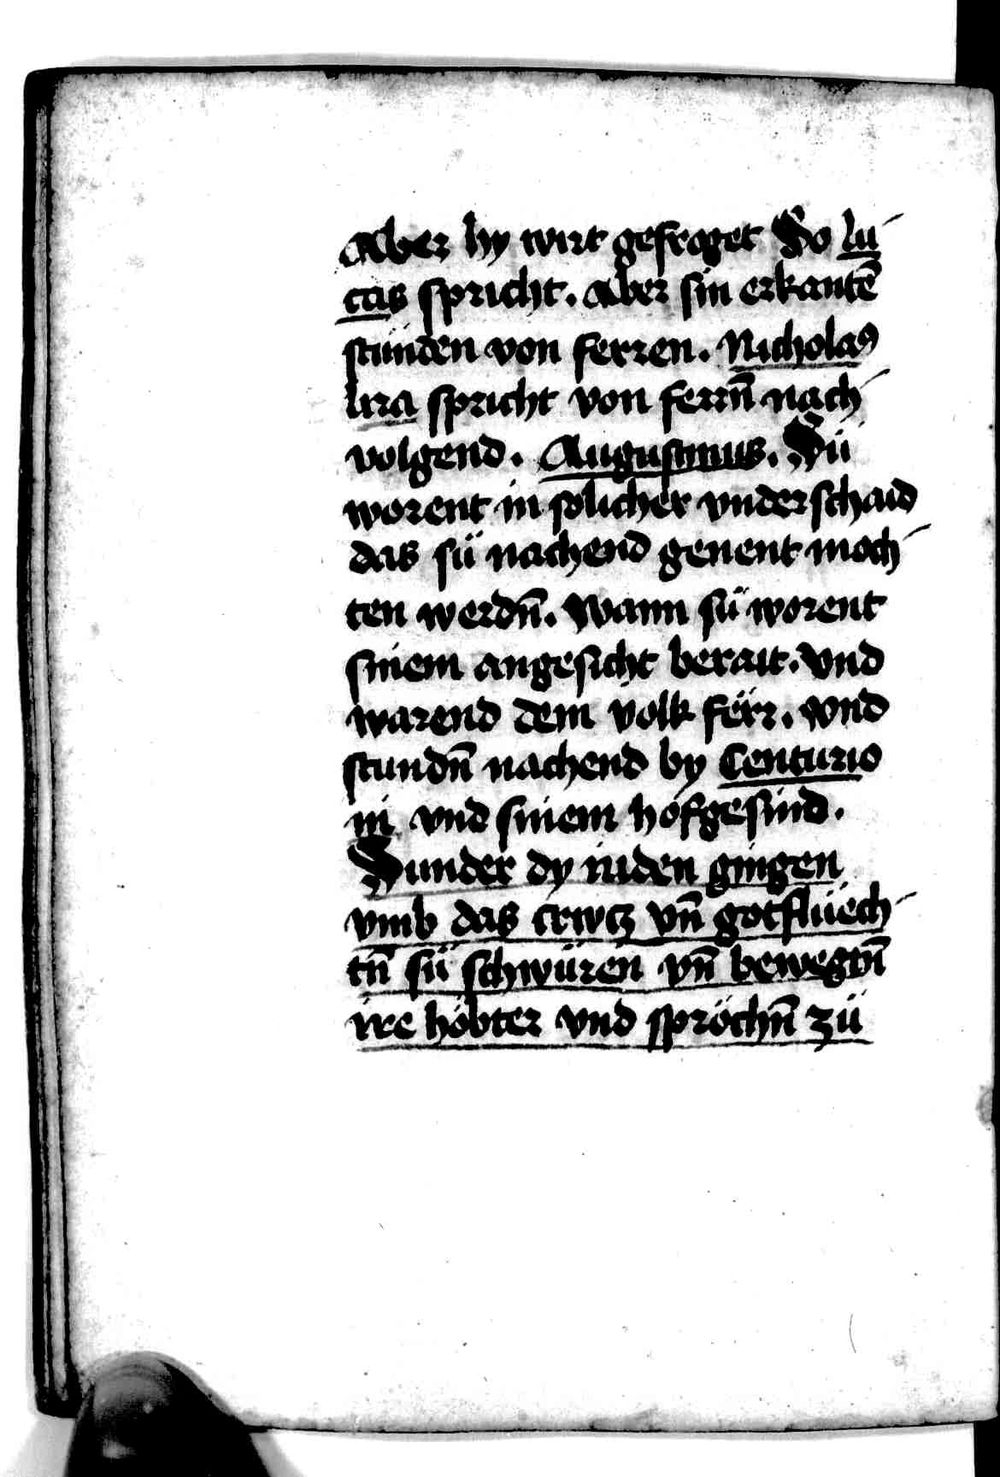 Aber hy wirt gefroget So lu
cas spricht. Aber sin erkantē
stůnden von ferren. Nicholaꝰ
lira spricht von ferrn̄ nach
volgend. Augustinus. Sü
worent in solicher vnderschaid
das sü nachend genent moch
ten werdn̄. Wann sü worent
sinem angesicht berait. Vnd
warend dem volk ferr. Vnd
stundn̄ nachend by Centurio
ni vnd sinem hofgesind.
Sunder dy iuden gingen
vmb das crwcz vn̄ gotflüech
tn̄ sü schwüren vn̄ bewegtn̄
ire höbter vnd spröchn̄ zü